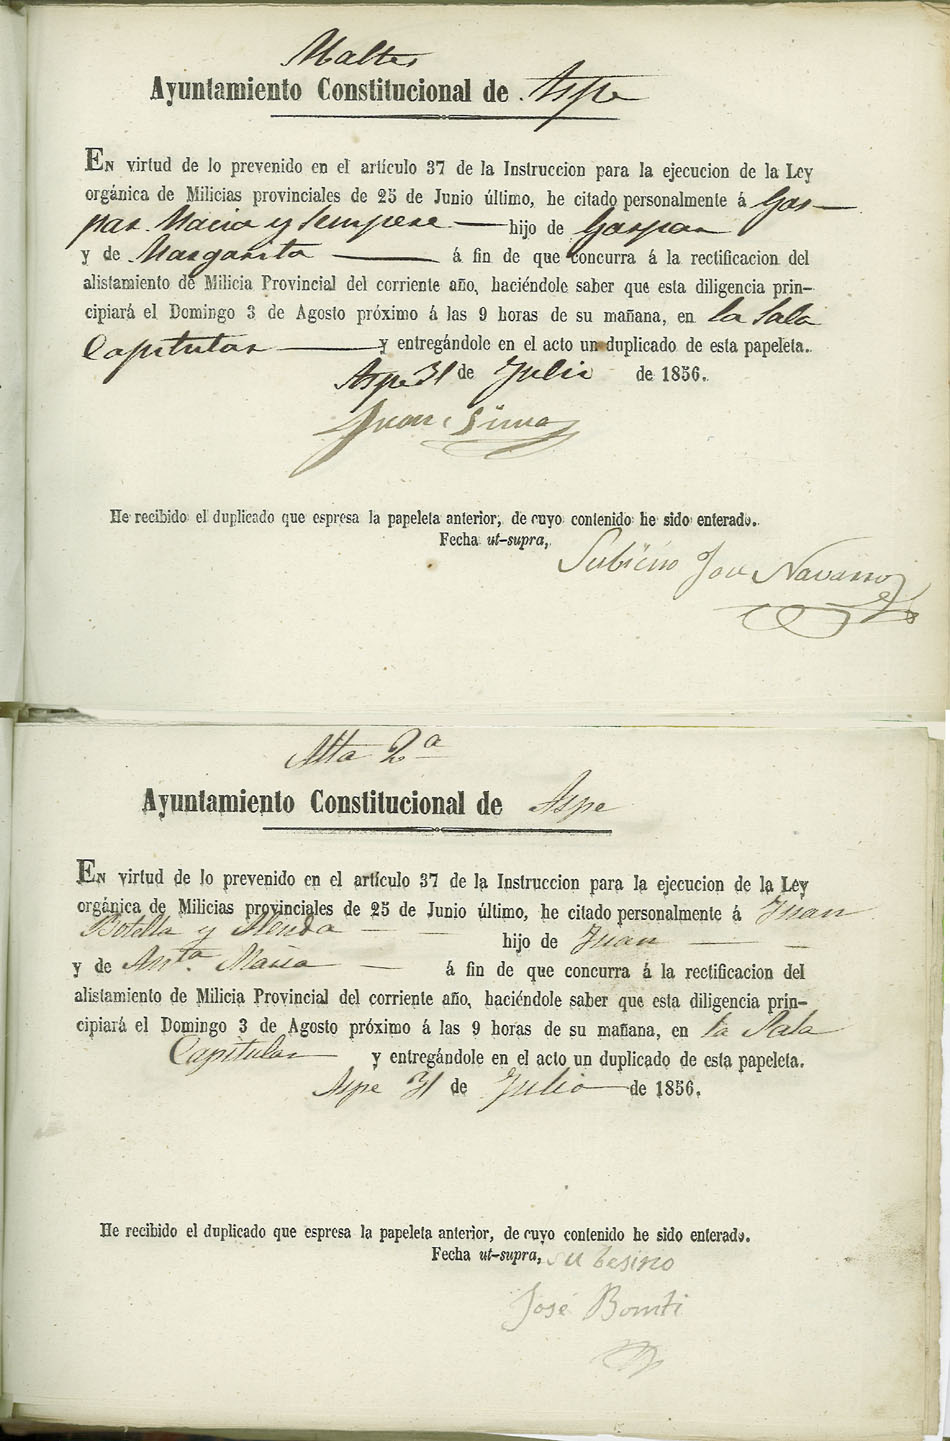 Maltes
Ayuntamiento Constitucional de Aspe
EN virtud de lo prevenido en el artículo 37 de la Instruccion para la ejecucion de la Ley
orgánica de Milicias provinciales de 25 de Junio último, he citado personalmente á Gas-
par Macia y Sempere hijo de Gaspar
y de Margarita á fin de que concurra á la rectificacion del
alistamiento de Milicia Provincial del corriente año, haciéndole saber que esta diligencia prin-
cipiará el Domingo 3 de Agosto próximo á las 9 horas de su mañana, en la Sala
Capitular y entregándole en el acto un duplicado de esta papeleta.
Aspe 31 de Julio de 1856.
Juan
He recibido el duplicado que espresa la papeleta anterior, de cuyo contenido he sido enterado.
Fecha ut-supra,
Navarro
Alta 2a
Ayuntamiento Constitucional de Aspe
EN virtud de lo prevenido en el artículo 37 de la Instruccion para la ejecucion de la Ley
orgánica de Milicias provinciales de 25 de Junio último, he citado personalmente á Juan
Botella y Almda hijo de Juan
y de Anta. Maria á fin de que concurra á la rectificacion del
alistamiento de Milicia Provincial del corriente año, haciéndole saber que esta diligencia prin-
cipiará el Domingo 3 de Agosto próximo á las 9 horas de su mañana, en la Sala
Capitular y entregándole en el acto un duplicado de esta papeleta.
Aspe 31 de Julio de 1856.
He recibido el duplicado que espresa la papeleta anterior, de cuyo contenido he sido enterado.
Fecha ut-supra, su besino
José Bomti